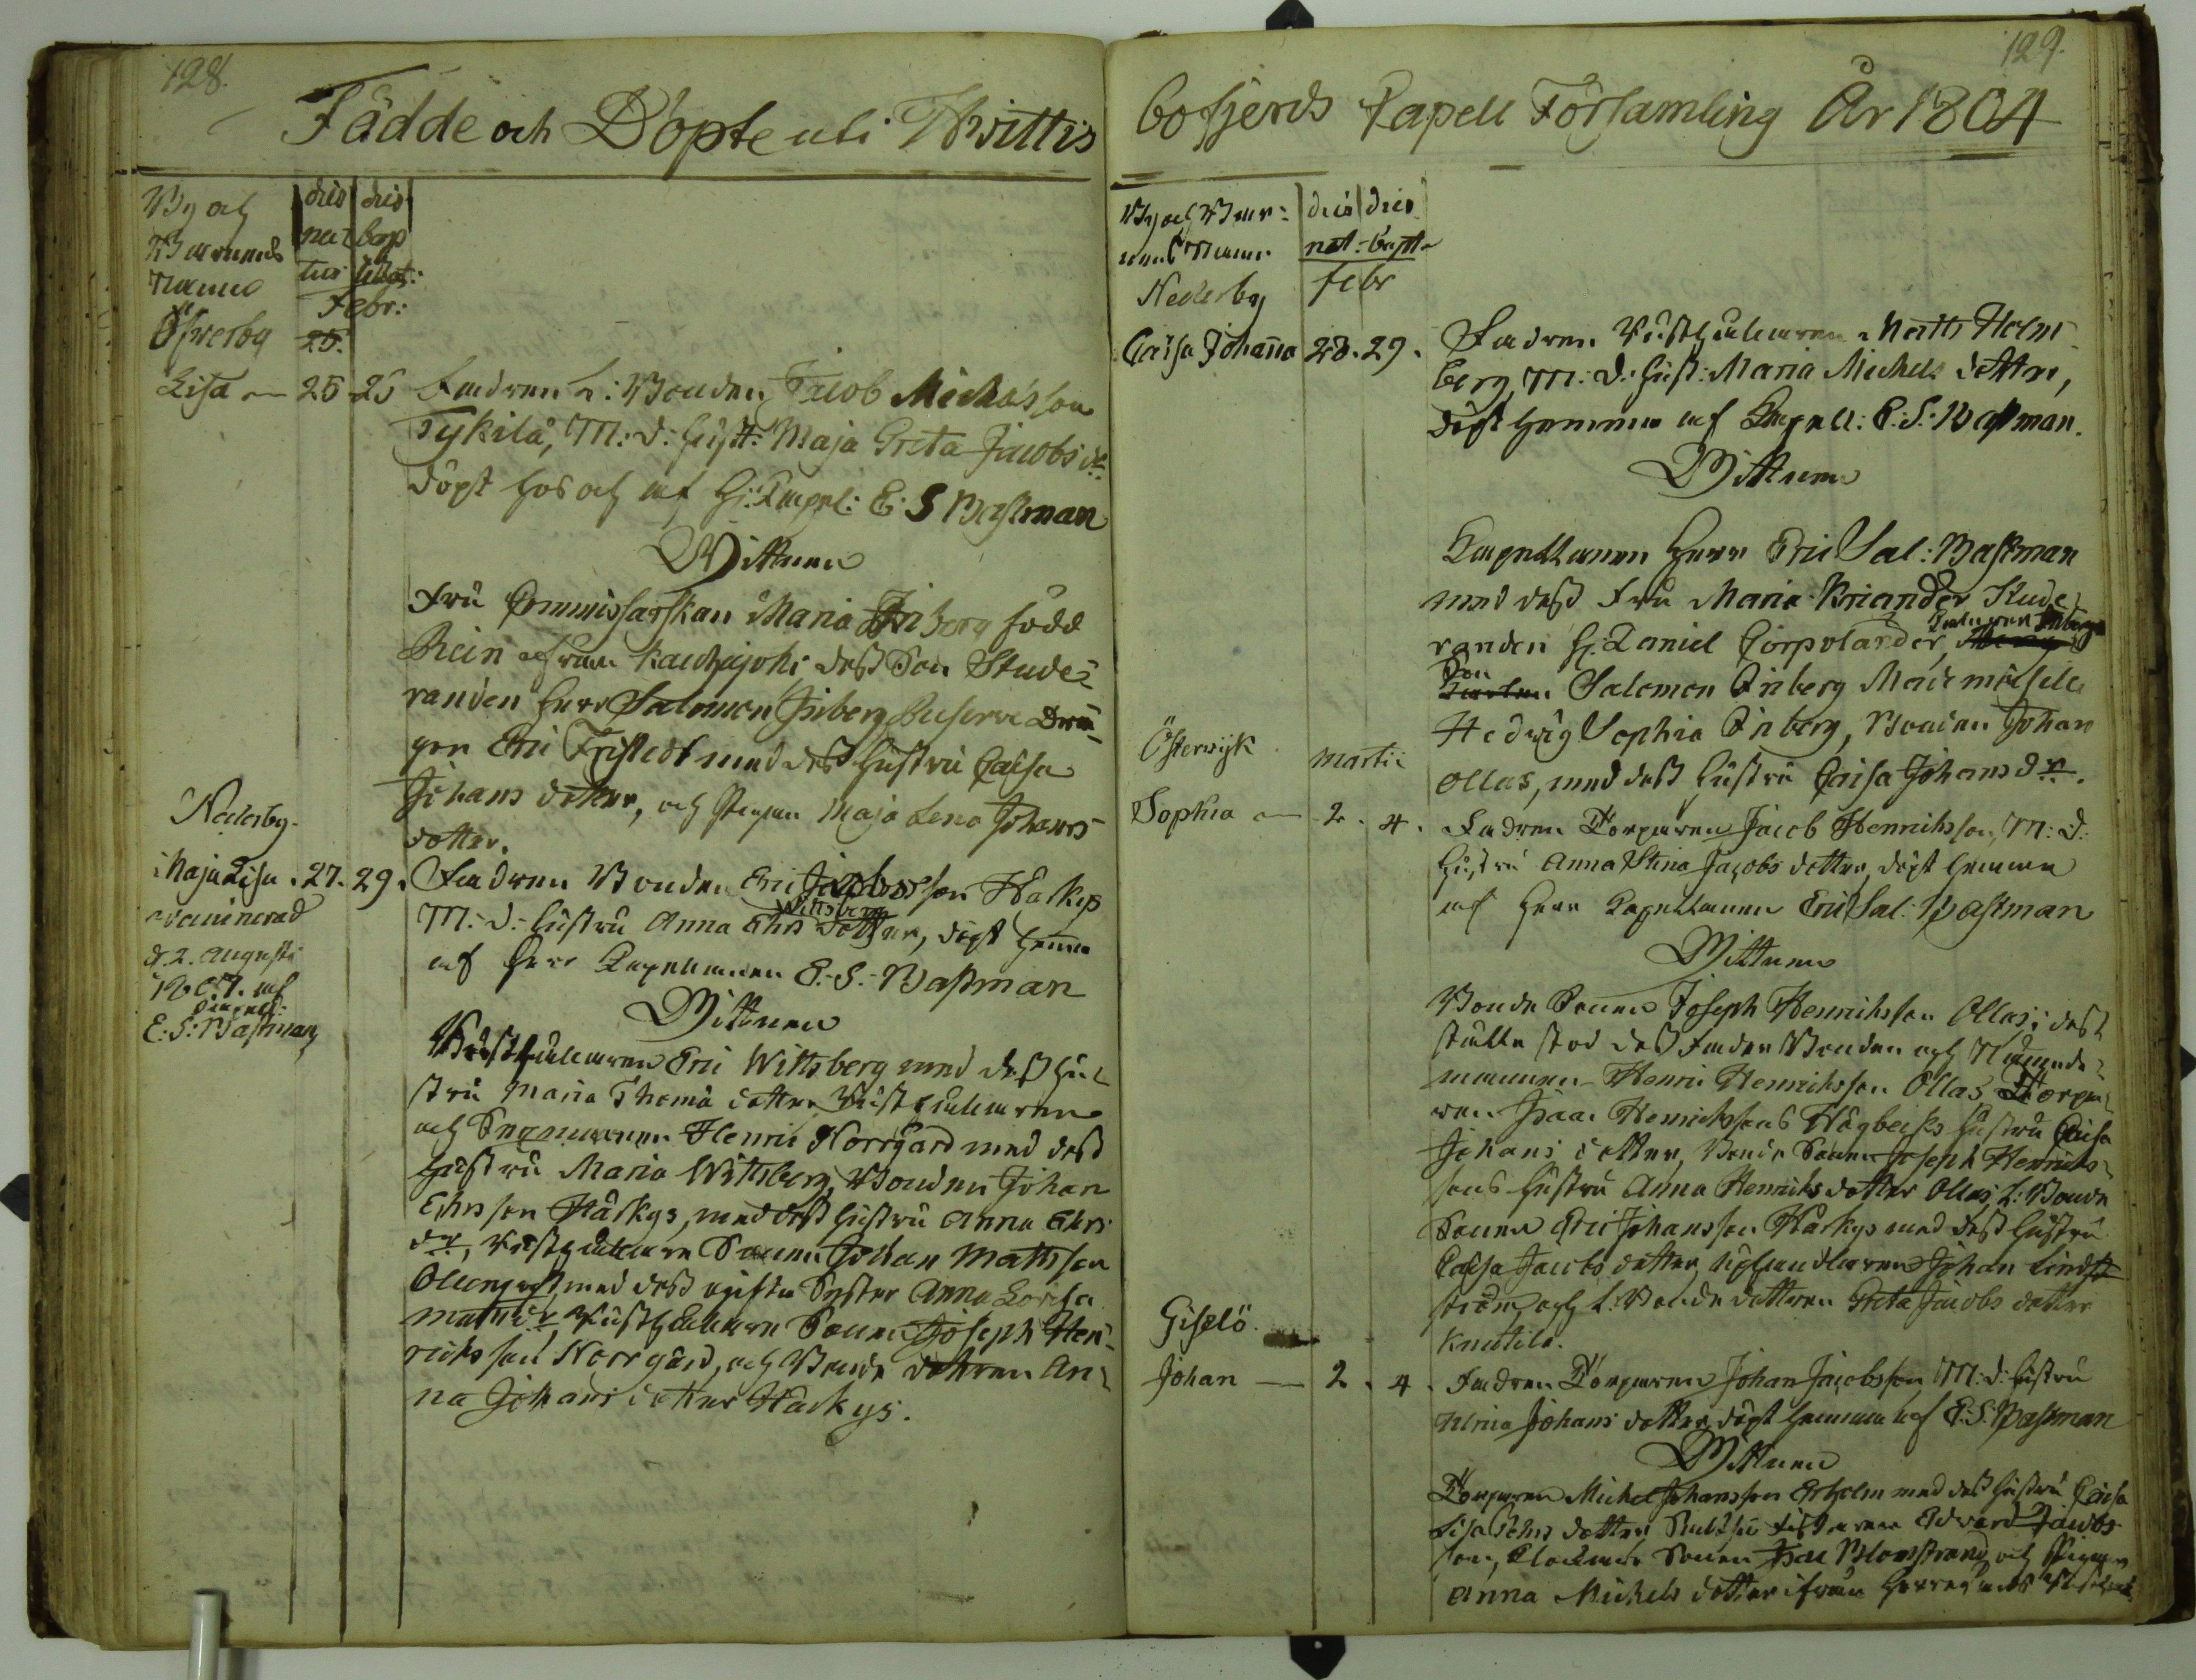 128.
Fädde och Döpte uti Hvittis
By och
Barnens
Namn
dies
na-
tus
dies
bap
tisat:
Febr:
Öfwerby
25.
Lisa 25 25 Fadren L: Bonden Jacob Michelsson
Tykilä, M: d: hust: Maja Greta Jacobs dr
döpt hos och af Hr: Capel: E: S Bastman
Wittnen
Fru Commissarskan Maria Inberg född
Rein ifrån Kauhajoki dess Son Stude-
randen Herr Salomon Inberg Reserve Dra-
gon Eric Fristedt med dess hustru Caisa
Johans dotter, och Pigan Maja Lena Johans
dotter.
Nederby
Maja Lisa 27. 29. Fadren Bonden Eric Jacobsson Harkys
vaccinerad
d. 2. Augusti
1807. af
Capell:
E: S: Bastman
M: d: hustru Anna Ehrs dotter, döpt hemma
Wittsberg
af Herr Capellanen E. S. Bastman
Wittnen
Kusthållaren Eric Wittsberg med dess hu-
stru Maria Thoma dotter Rusthållaren
och Sexmannen Henric Norrgård med dess
hustru Maria Wittsberg, Bonden Johan
Ehrsson Harkys, med dess hustru Anna Ehrs
dr, Rusthållare Sonen Johan Mattsson
Ollengvist med dess ogifta Syster Anna Lovisa
Matts dr, Rusthållare Sonen Joseph Hen-
richsson Norrgård, och Bonde dottren An-
na Johans dotter Harkys.
129.
bofjerds Capell Församling År 1804
By och Bar-
nens Namn
dies dies
nat: bapt
Nederby
febr
Caisa Johanna 28. 29. Fadren Rusthållaren Matts Holm-
berg, M: d: hust: Maria Michels dotter,
döpt hemma af Capell: E: S: Bastman.
Wittnen
Capellanen Herr Eric Sal: Bastman
med dess Fru Maria Kriander Stude-
randen H: Daniel Corpolander, Inberg
Son
Salomon Inberg Mademoiselle
Hedwig Sophia Inberg, Bonden Johan
Ollas, med dess hustru Caisa Johans dr.
Österwijk
Martii
Sophia 2. 4. Fadren Torparen Jacob Henrichsson, M: d:
hustru Anna Stina Jacobs dotter, döpt hemma
af Herr Capellanen Eric Sal: Bastman
Wittnen
Bonde Sonen Joseph Henrichsson Ollas, i dess
ställe stod dess Fader Bonden och Nämnde-
mannen Henric Henrichsson Ollas Torpa-
ren Isaac Henrichssons Högbergs hustru Caisa
Johans dotter, Bonde Sonen Joseph Henrichs-
sons hustru Anna Henrichs dotter Ollas, L: Bonde
Sonen Eric Johansson Harkys med dess hustru
Caisa Jacobs dotter, Johan Lind-
ström och L: Bonde dottren Greta Jacobs dotter
Knutila.
Gisslö
Johan 2. 4. Fadren Torparen Johan Jacobsson M: d: hustru
Ulrica Johans dotter döpt hemma af E. S. Bastman
Wittnen
Torparen Michel Johansson Erholm med dess hustru Caisa
Lisa Johns dotter Edvard Jacobs-
son, Sonen Isac Blomstrand, och Pigan
Anna Michels dotter ifrån